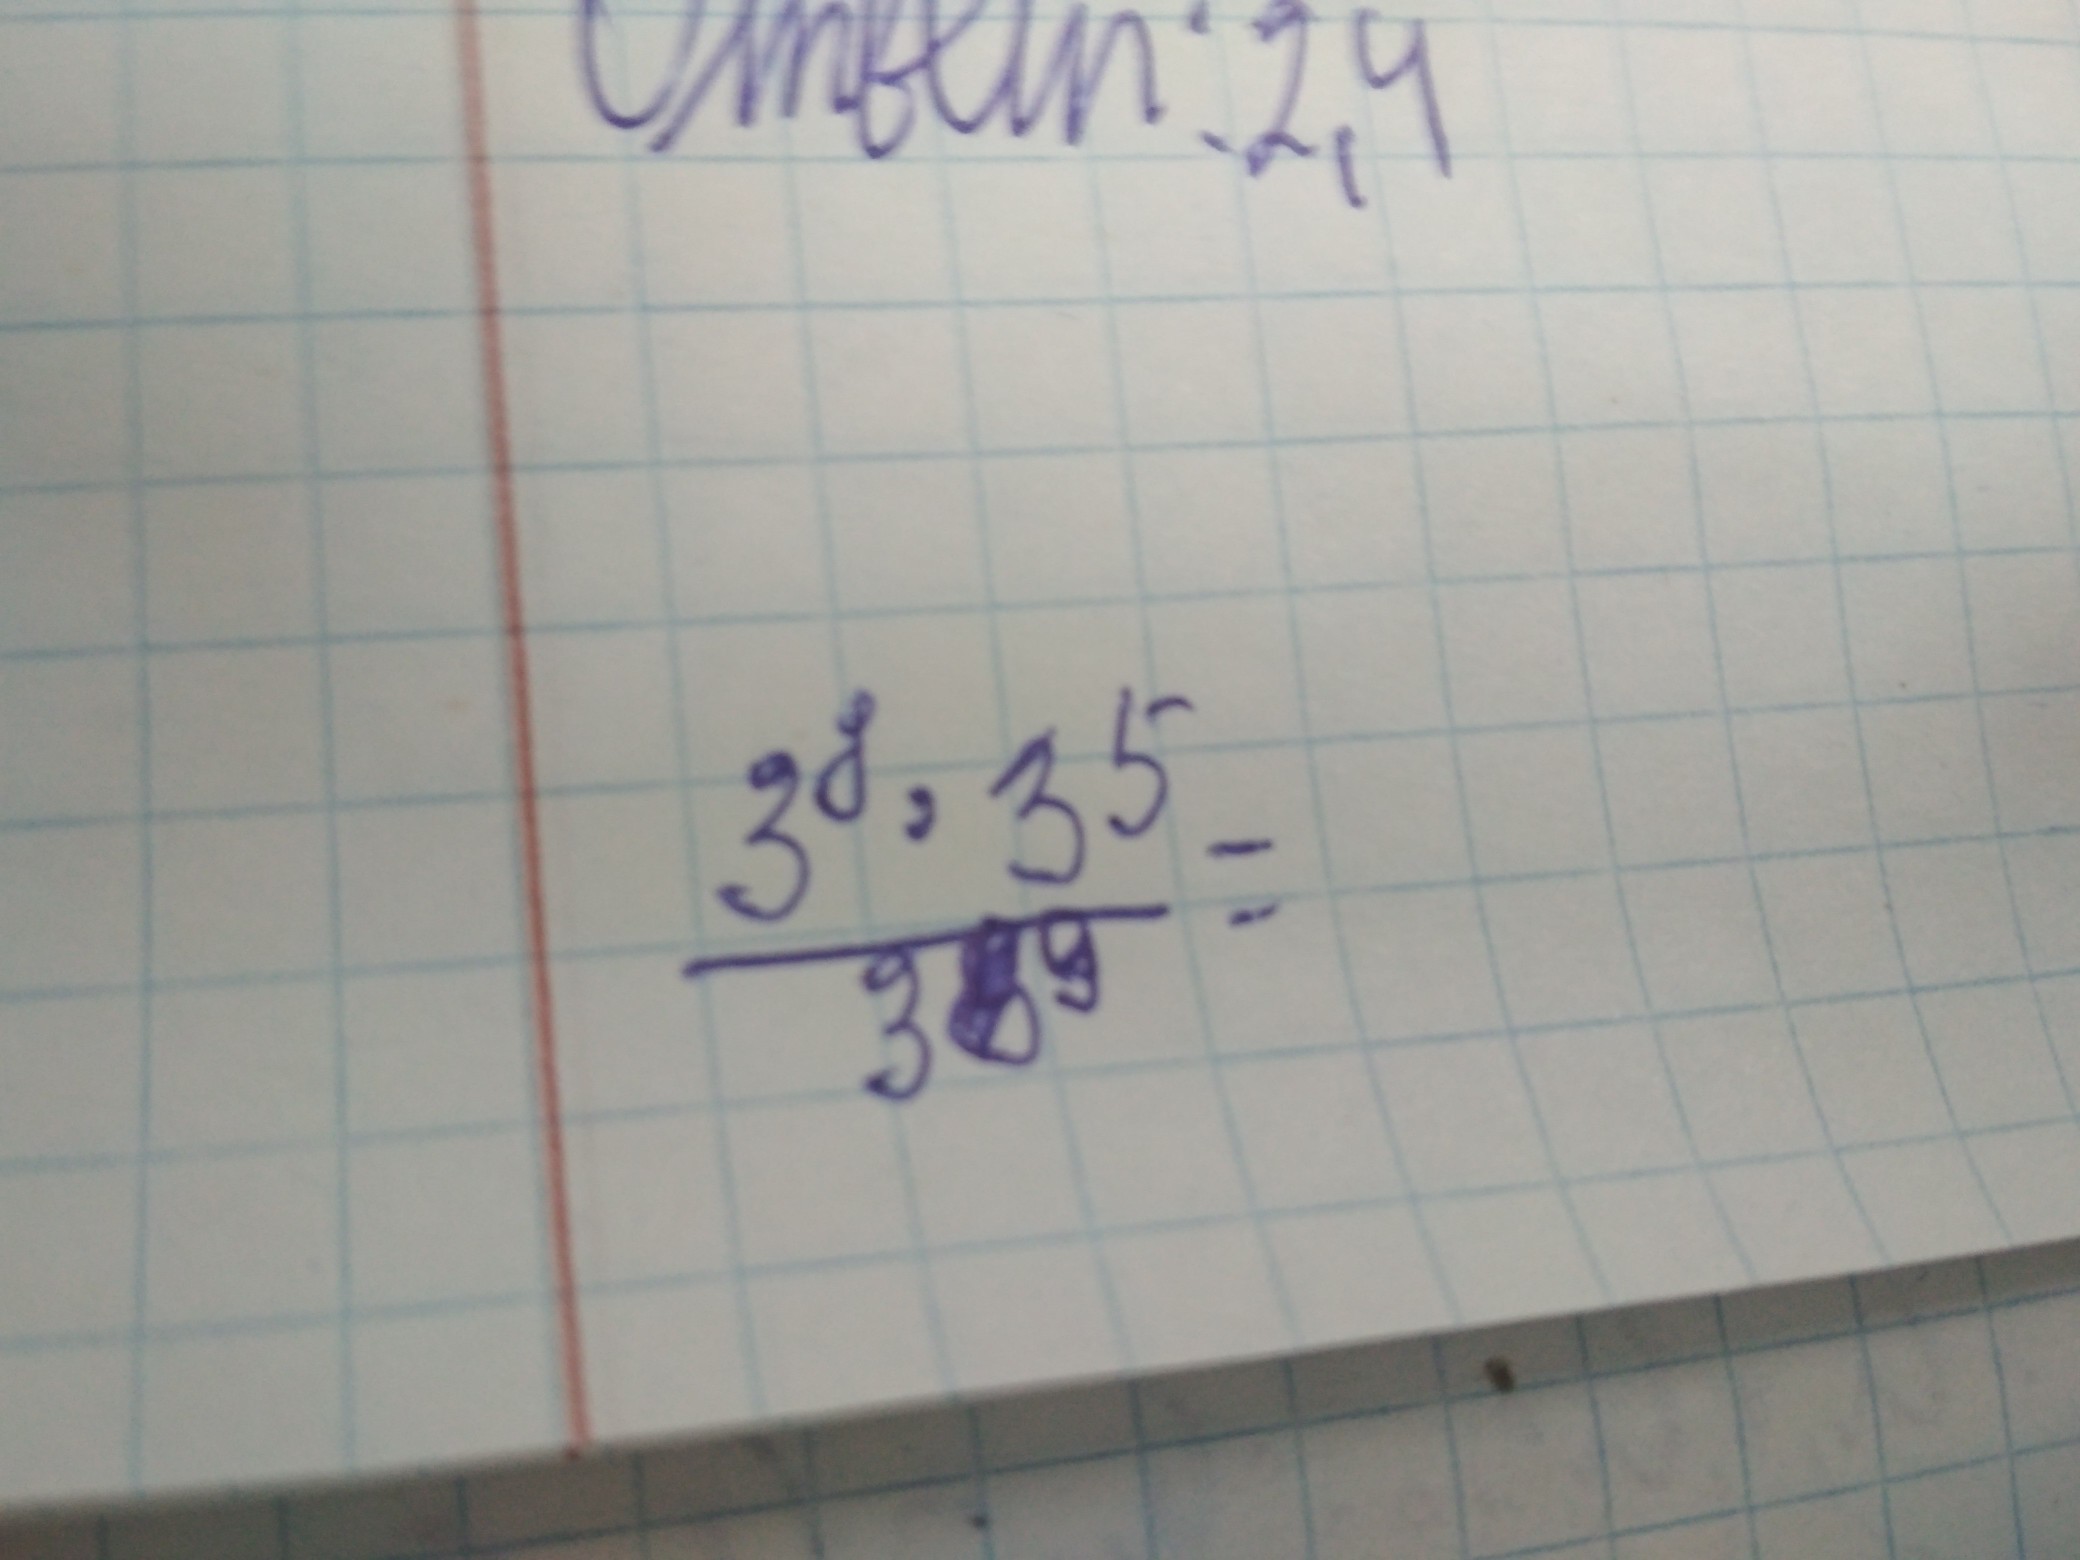 Ответ: 2,4
3⁸ · 3⁵ =
3⁹